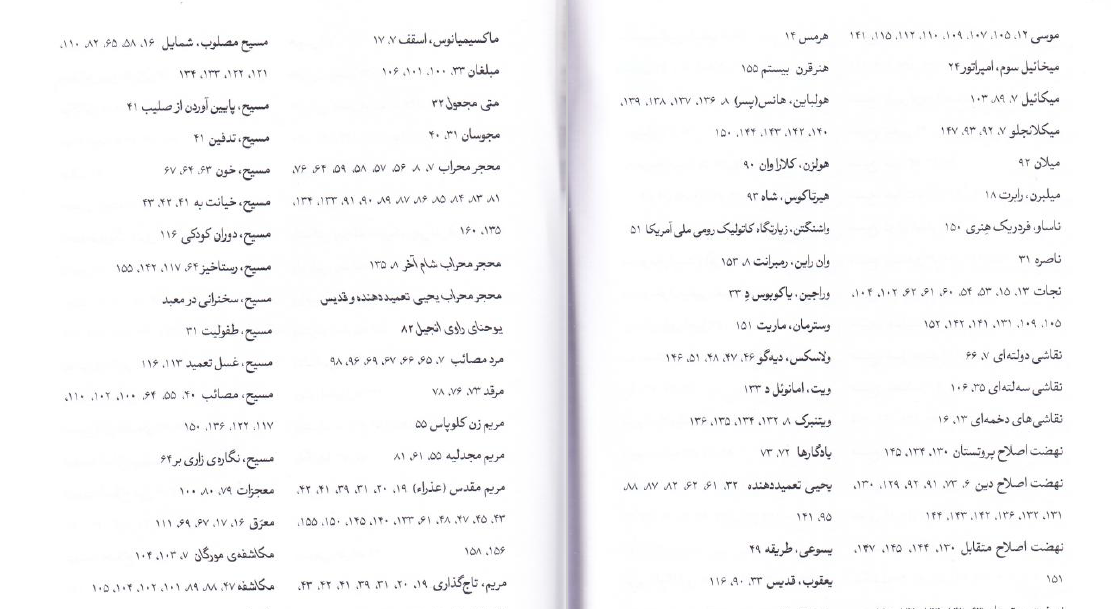 موسی ۱۲، ۱۰۵، ۱۰۷، ۱۰۹، ۱۱۰، ۱۱۲، ۱۱۵، ۱۴۱
میخائیل سوم، امپراتور ۲۴
میکائیل ۷، ۸۹، ۱۰۳
میکلانجلو ۷، ۹۲، ۹۳، ۱۴۷
میلان ۹۲
میلبرن، رابرت ۱۸
ناساو، فردریک هِنری ۱۵۰
ناصره ۳۱
نجات ۱۳، ۱۵، ۵۳، ۵۴، ۶۰، ۶۱، ۶۲، ۱۰۲، ۱۰۴،
۱۰۵، ۱۰۹، ۱۳۱، ۱۴۱، ۱۴۲، ۱۵۲
نقاشی دولته‌ای ۷، ۶۶
نقاشی سه‌لته‌ای ۳۵، ۱۰۶
نقاشی‌های دخمه‌ای ۱۳، ۱۶
نهضت اصلاح پروتستان ۱۳۰، ۱۳۴، ۱۴۵
نهضت اصلاح دین ۶، ۷۳، ۹۱، ۹۲، ۱۲۹، ۱۳۰،
۱۳۱، ۱۳۲، ۱۳۶، ۱۴۲، ۱۴۳، ۱۴۴
نهضت اصلاح متقابل ۱۳۰، ۱۴۴، ۱۴۵، ۱۴۷،
۱۵۱
هرمس ۱۴
هنر قرن بیستم ۱۵۵
هولباین، هانس(پسر) ۸، ۱۳۶، ۱۳۷، ۱۳۸، ۱۳۹،
۱۴۰، ۱۴۲، ۱۴۳، ۱۴۴، ۱۵۰
هولزن، کلارا وان ۹۰
هیرتاکوس، شاه ۹۳
واشنگتن، زیارتگاه کاتولیک رومی ملی آمریکا ۵۱
وان راین، رمبرانت ۸، ۱۵۳
وراجین، یاکوبوس دِ ۳۳
وسترمان، ماریت ۱۵۱
ولاسکس، دیه‌گو ۴۶، ۴۷، ۴۸، ۵۱، ۱۴۶
ویت، امانوئل د ۱۳۳
ویتنبرک ۸، ۱۳۲، ۱۳۴، ۱۳۵، ۱۳۶
یادگارها ۷۲، ۷۳
یحیی تعمیددهنده ۳۲، ۶۱، ۶۲، ۸۲، ۸۷، ۸۸،
۹۵، ۱۴۱
یسوعی، طریقه ۴۹
یعقوب، قدیس ۳۳، ۹۰، ۱۱۶
ماکسیمیانوس، اسقف ۷، ۱۷
مبلغان ۳۳، ۱۰۰، ۱۰۱، ۱۰۶
متی مجعول ۳۲
مجوسان ۳۱، ۴۰
محجر محراب ۷، ۸، ۵۶، ۵۷، ۵۸، ۵۹، ۶۴، ۷۶،
۸۱، ۸۳، ۸۴، ۸۵، ۸۶، ۸۷، ۸۹، ۹۰، ۹۱، ۱۳۳، ۱۳۴،
۱۳۵، ۱۶۰
محجر محراب شام آخر ۸، ۱۳۵
محجر محراب یحیی تعمیددهنده و قدیس
یوحنای راوی انجیل ۸۲
مرد مصائب ۷، ۶۵، ۶۶، ۶۷، ۶۹، ۹۶، ۹۸
مرقد ۷۳، ۷۶، ۷۸
مریم زن کلوپاس ۵۵
مریم مجدلیه ۵۵، ۶۱، ۸۱
مریم مقدس (عذراء) ۱۹، ۲۰، ۳۱، ۳۹، ۴۱، ۴۲،
۴۳، ۴۵، ۴۷، ۴۸، ۶۱، ۱۳۳، ۱۴۰، ۱۴۵، ۱۵۰، ۱۵۵،
۱۵۶، ۱۵۸
مریم، تاج‌گذاری ۱۹، ۲۰، ۳۱، ۳۹، ۴۱، ۴۲، ۴۳،
مسیح مصلوب، شمایل ۱۶، ۵۸، ۶۵، ۸۲، ۱۱۰،
۱۲۱، ۱۲۲، ۱۳۳، ۱۳۴
مسیح، پایین آوردن از صلیب ۴۱
مسیح، تدفین ۴۱
مسیح، خون ۶۳، ۶۴، ۶۷
مسیح، خیانت به ۴۱، ۴۲، ۴۳
مسیح، دوران کودکی ۱۱۶
مسیح، رستاخیز ۶۴، ۱۱۷، ۱۴۲، ۱۵۵
مسیح، سخنرانی در معبد
مسیح، طفولیت ۳۱
مسیح، غسل تعمید ۱۱۳، ۱۱۶
مسیح، مصائب ۴۰، ۵۵، ۶۴، ۱۰۰، ۱۰۲، ۱۱۰،
۱۱۷، ۱۲۲، ۱۳۶، ۱۵۰
مسیح، نگاره‌ی زاری بر ۶۴
معجزات ۷۹، ۸۰، ۱۰۰
معرّق ۱۶، ۱۷، ۶۷، ۶۹، ۱۱۱
مکاشفه‌ی مورگان ۷، ۱۰۳، ۱۰۴
مکاشفه ۴۷، ۸۸، ۸۹، ۱۰۱، ۱۰۲، ۱۰۴، ۱۰۵